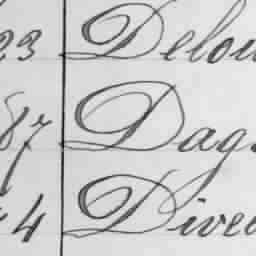 23 Delou
87 Dag.
4 Dive